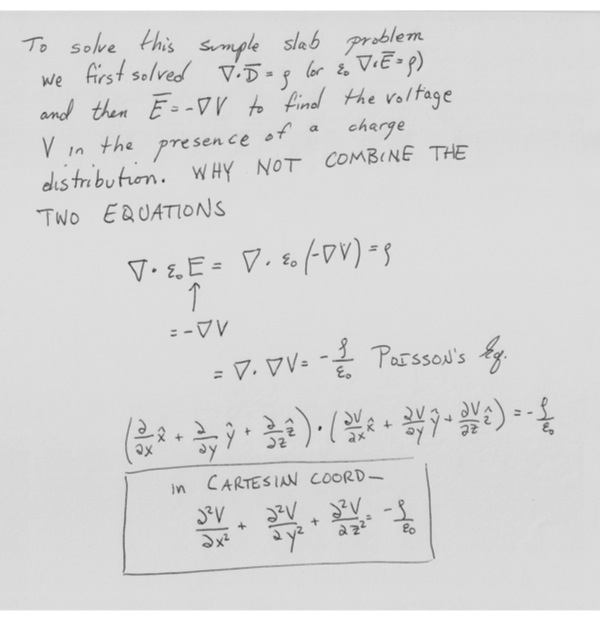 To solve this simple slab problem
we first solved ∇·D̅ = ρ (or ε₀ ∇·E̅ = ρ)
and then E̅ = -∇V to find the voltage
V in the presence of a charge
distribution. WHY NOT COMBINE THE
TWO EQUATIONS
∇· ε₀E = ∇· ε₀(-∇V) = ρ
↑
= -∇V
= ∇· ∇V = -ρ/ε₀ POISSON'S Eq.
(∂/∂x x̂ + ∂/∂y ŷ + ∂/∂z ẑ) · (∂V/∂x x̂ + ∂V/∂y ŷ + ∂V/∂z ẑ) = -ρ/ε₀
in CARTESIAN COORD—
∂²V/∂x² + ∂²V/∂y² + ∂²V/∂z² = -ρ/ε₀